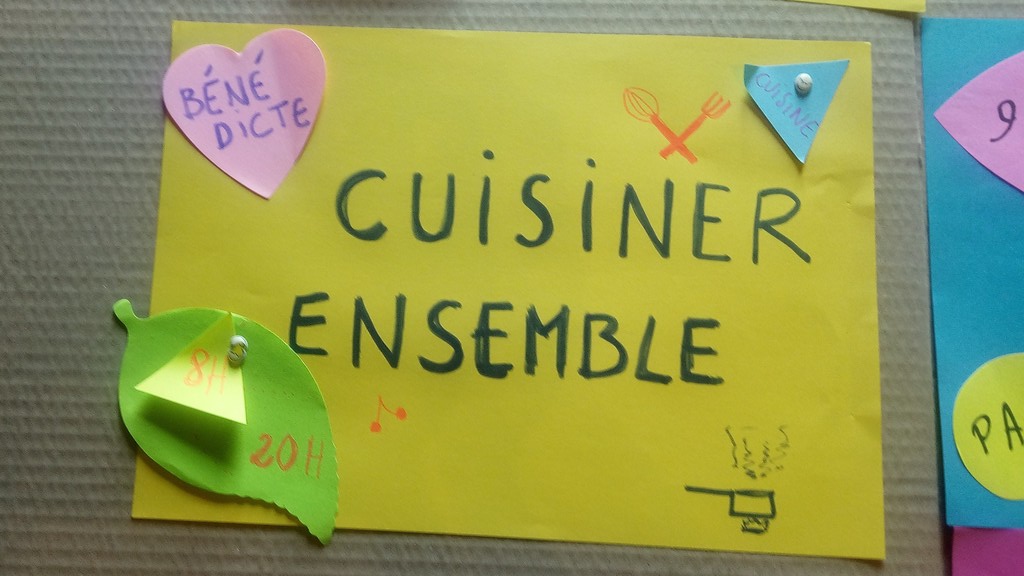 BÉNÉ
DICTE
CUISINE
CUISINER
ENSEMBLE
8H
20H
9
PA